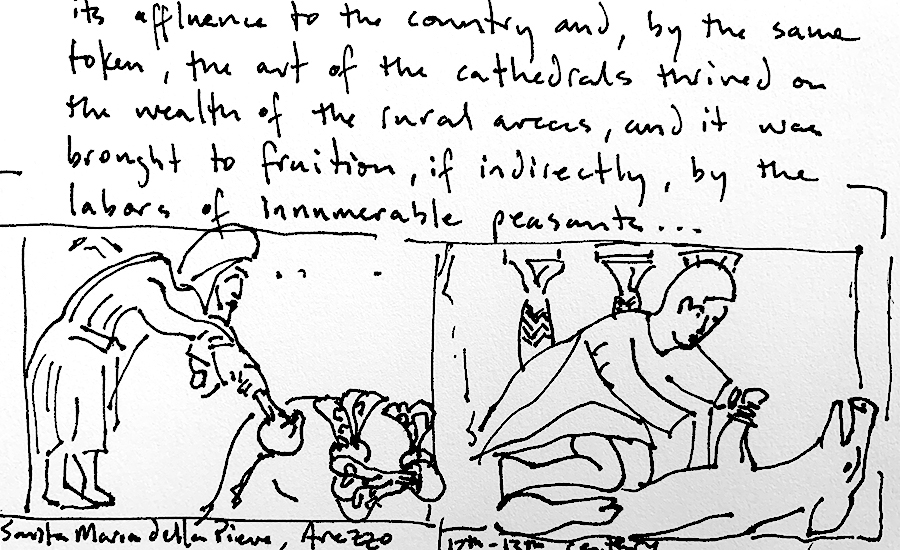 its affluence to the country and, by the same
token, the art of the cathedrals thrived on
the wealth of the rural areas, and it was
brought to fruition, if indirectly, by the
labors of innumerable peasants...
Santa Maria della Pieve, Arezzo
12th-13th century